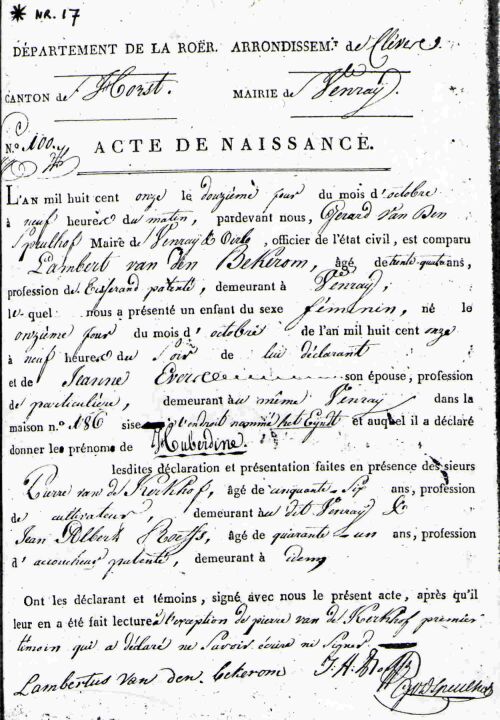 * NR. 17
DÉPARTEMENT DE LA ROËR. ARRONDISSEM.t de Clèves.
CANTON de Horst. MAIRIE de Venray.
N.o 100.
ACTE DE NAISSANCE.
L'AN mil huit cent onze le douzième jour du mois d'octobre
à neuf heures du matin, pardevant nous, Gerard Van Den
Speulhof Maire de Venray & Oirlo, officier de l'état civil, est comparu
Lambert van den Bekerom, âgé de trente quatre ans,
profession de Tisserand patenté, demeurant à Venray;
le quel nous a présenté un enfant du sexe féminin, né le
onzième jour du mois d'octobre de l'an mil huit cent onze
à neuf heures du Soir de lui déclarant
et de Jeanne Evers son épouse, profession
de particulière, demeurant au même Venray dans la
maison n.o 186 sise à l'endroit nommé het et auquel il a déclaré
donner les prénoms de Huberdine.
lesdites déclaration et présentation faites en présence des sieurs
Pierre van de Kerkhof, âgé de cinquante-six ans, profession
de cultivateur, demeurant au dit Venray &
Jean Albert Roeffs, âgé de quarante-un ans, profession
d'accoucheur patenté, demeurant à idem
Ont les déclarant et témoins, signé avec nous le présent acte, après qu'il
leur en a été fait lecture à l'exception de pierre van de Kerkhof premier
témoin qui a déclaré ne Savoir écrire ni Signer.
Lambertus van den bekerom J. A. Roeffs GvDSpeulhof